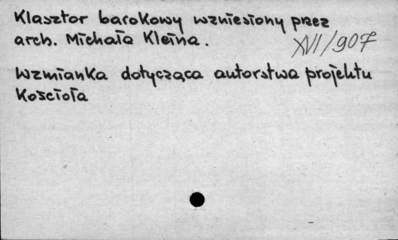 Klasztor barokowy wzniesiony przez
arch. Michała Kleina.
XVI/907
Wzmianka dotycząca autorstwa projektu
Kościoła